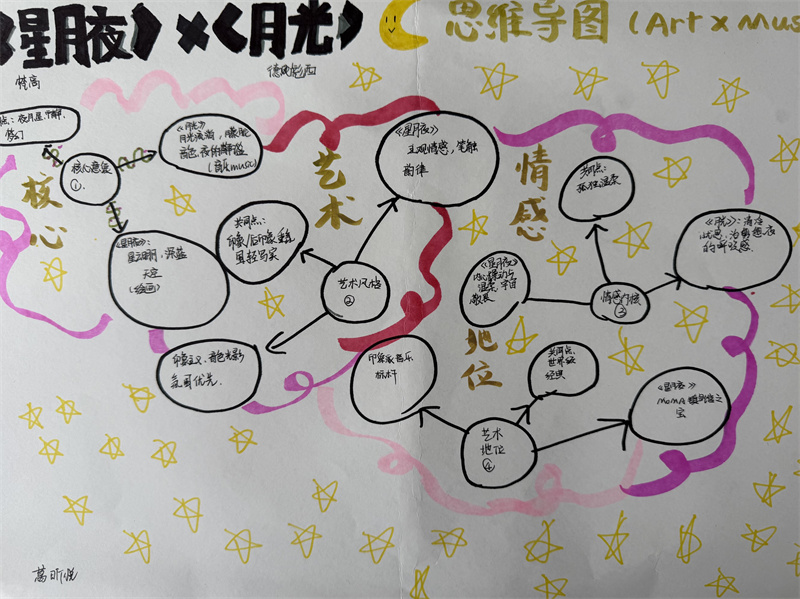 《星月夜》×《月光》思维导图(Art x Mus
梵高
德彪西
点:夜月星,
梦幻
核心意象
①.
《月光》
月光流淌,朦胧
音色,夜的静谧
(音乐music)
核心
《星月夜》:
星云翻涌,深蓝
天空
(绘画)
艺术
《星月夜》
主观情感,笔触
韵律
共同点:
印象/后印象
轻写实
艺术风格
②
印象主义、音色光影
氛围优先.
情感
共同点:
孤独温柔
《月光》:清冷
忧思,
的呼吸感
《星月夜》
内心躁动与
温柔,宇宙
敬畏
情感内核
③
地位
印象派音乐
标杆
共同点:
世界级
经典
《星月夜》
MoMA镇馆之
宝
艺术
地位
④
葛昕悦